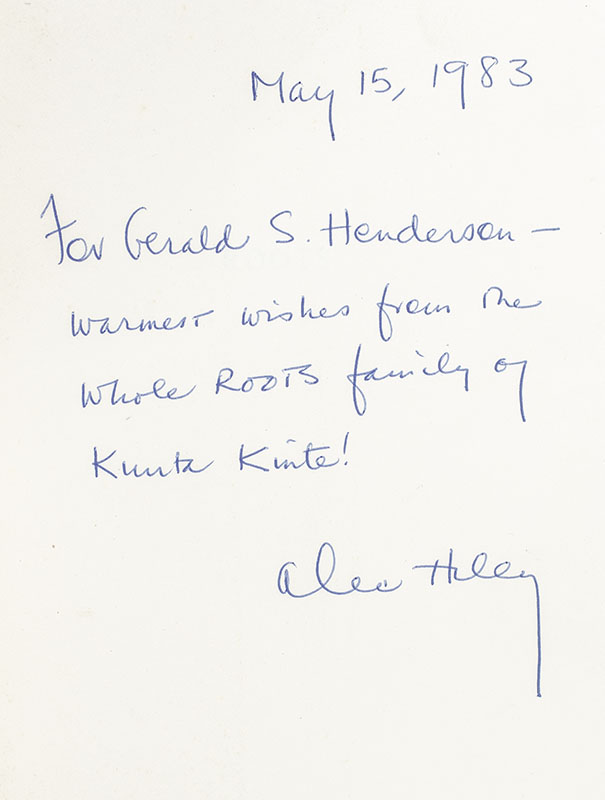 May 15, 1983
For Gerald S. Henderson —
warmest wishes from the
whole ROOTS family of
Kunta Kinte!
Alex Haley